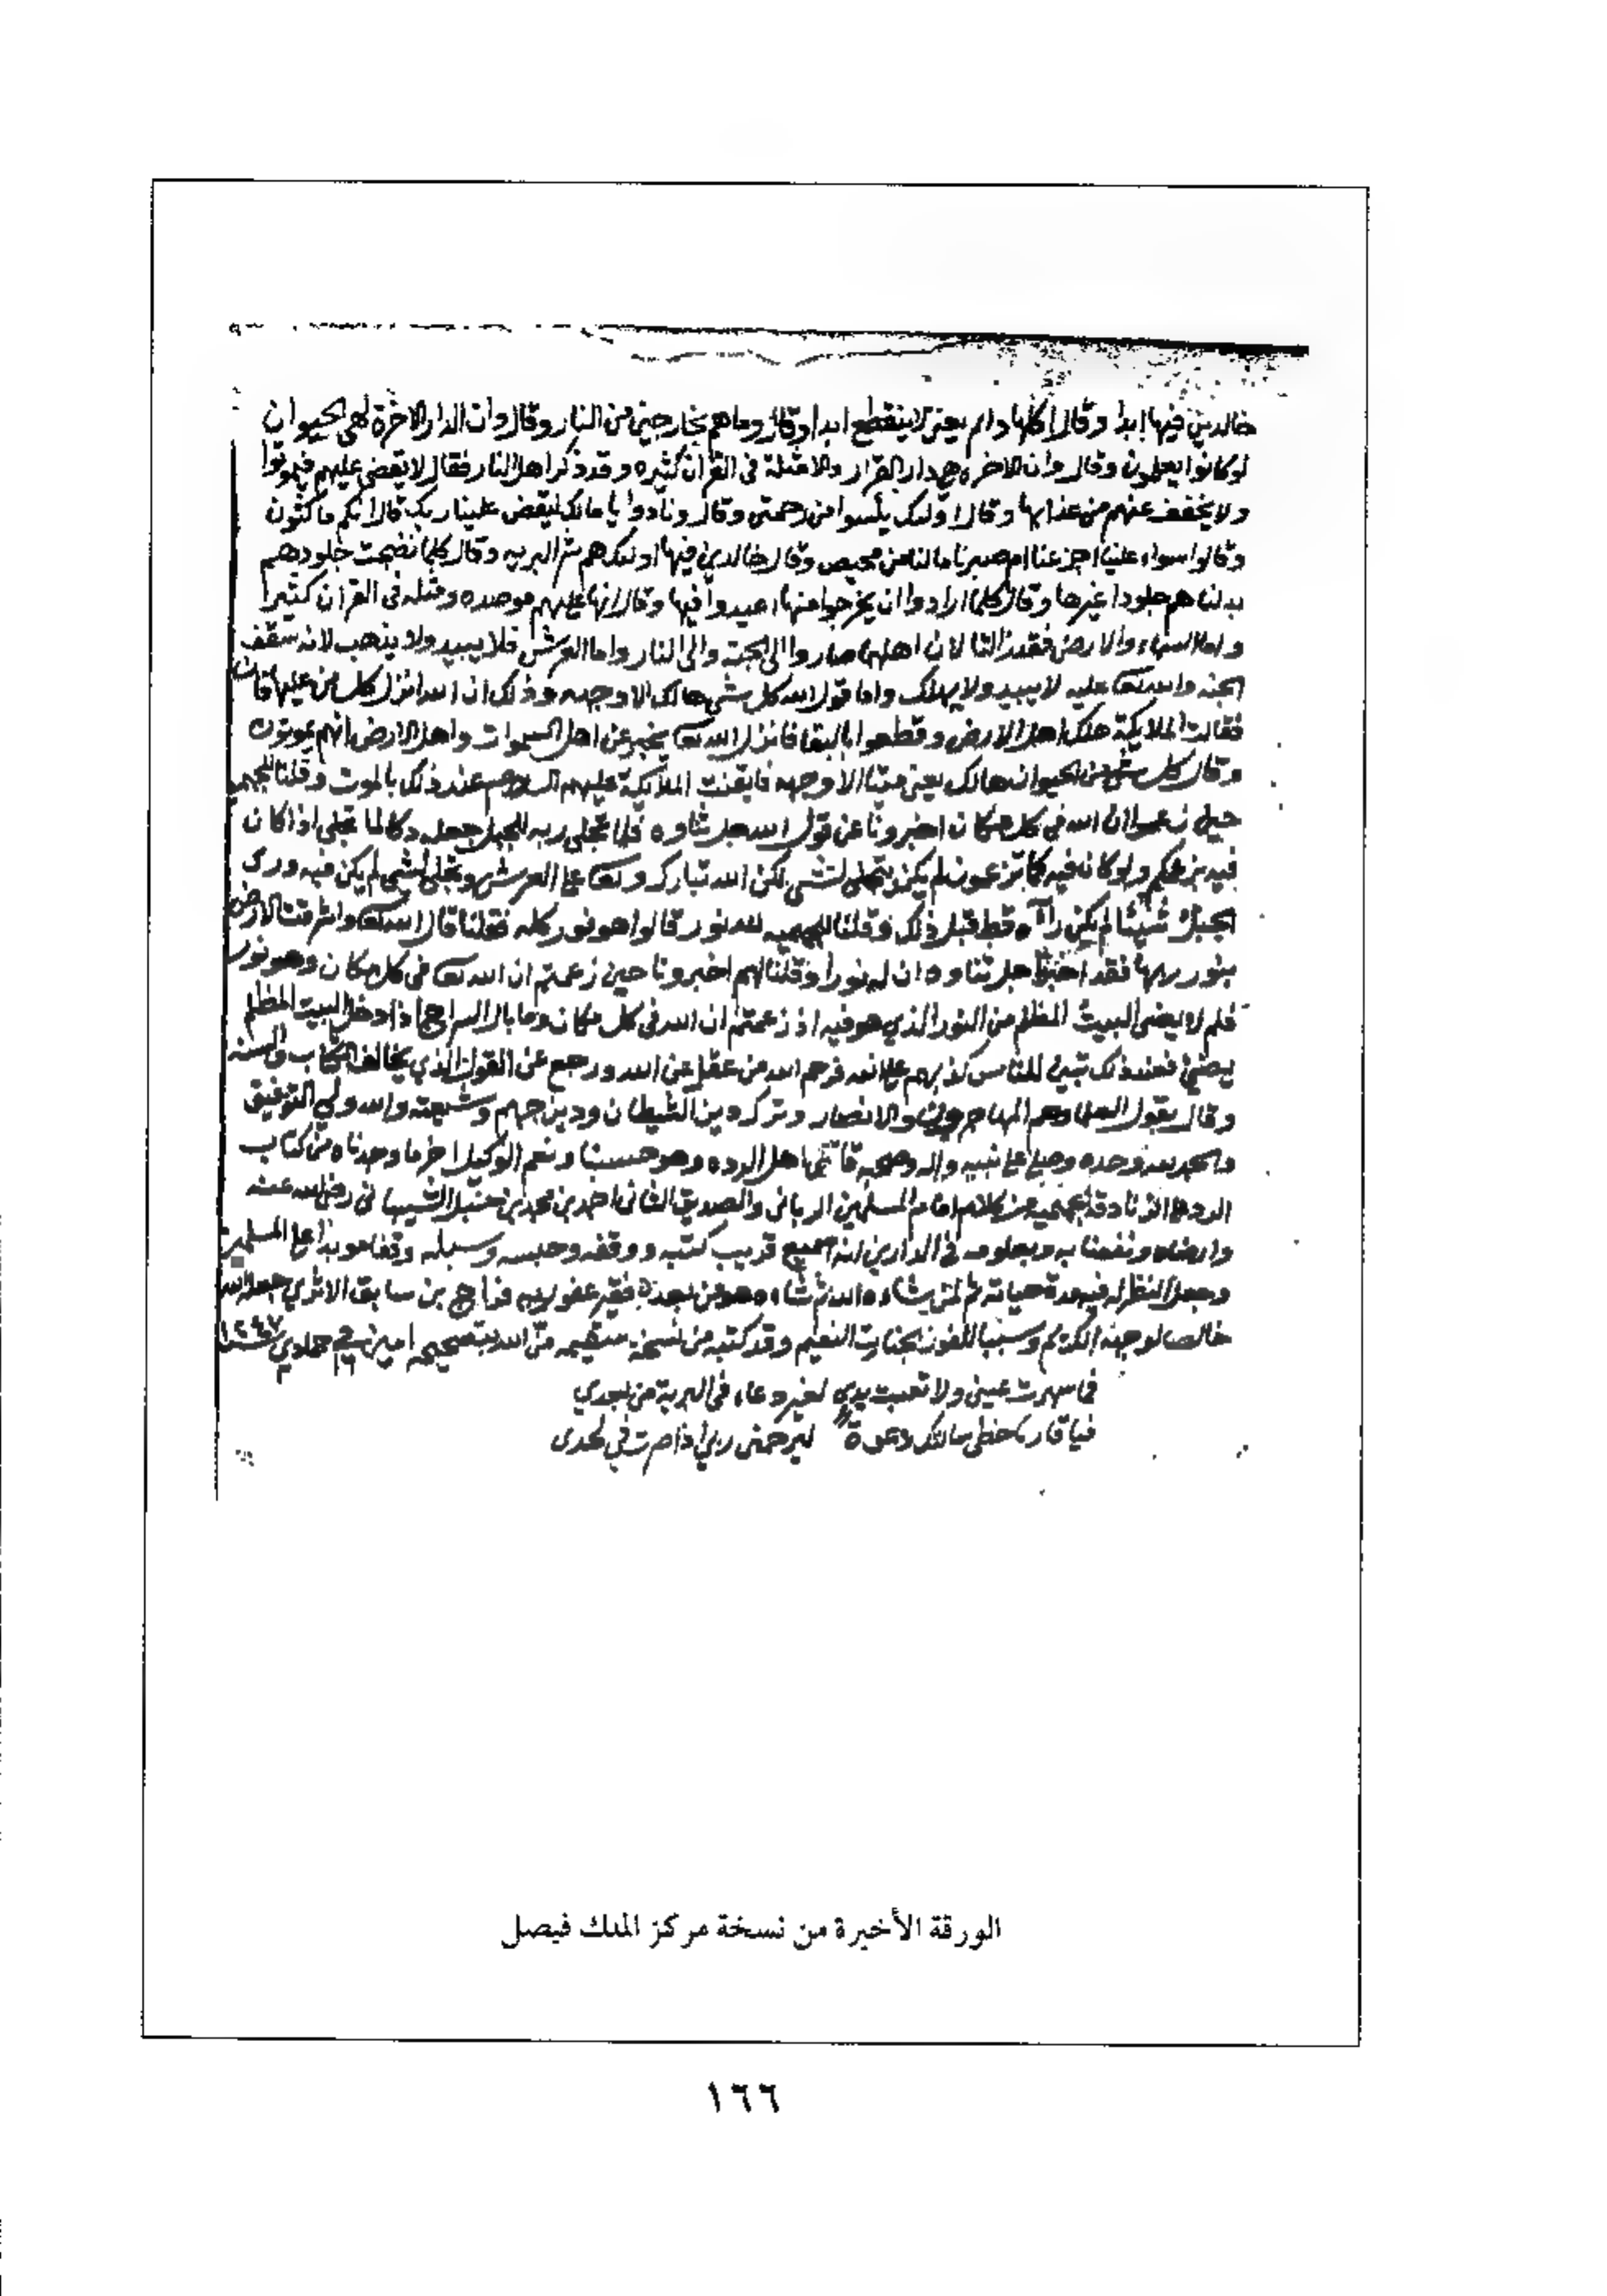 خالدين فيها ابدا وقال اكلها دائم يعني لا ينقطع ابدا وقال وما هم بخارجين من النار وقال وان الدار الاخرة لهي الحيوان
لو كانوا يعلمون وقال وان الاخره هي دار القرار والامثلة في القران كثيره وقد ذكر اهل النار فقال لا يقضى عليهم فيموتوا
ولا يخفف عنهم من عذابها وقال اولئك يئسوا من رحمتي وقال ونادوا يا مالك ليقض علينا ربك قال انكم ماكثون
وقالوا سواء علينا اجزعنا ام صبرنا مالنا من محيص وقال خالدين فيها اولئك هم شر البريه وقال كلما نضجت جلودهم
بدلناهم جلودا غيرها وقال كلما ارادوا ان يخرجوا منها اعيدوا فيها وقال انها عليهم موصده ومثله في القران كثيرا
واما السماء والارض فقد زالتا لان اهلها صاروا الى الجنة والى النار واما العرش فلا يبيد ولا يذهب لانه سقف
الجنه والله تعا عليه لا يبيد ولا يهلك واما قول الله كل شي هالك الا وجهه وذلك ان الله انزل كل من عليها فان
فقالت الملايكة هلك اهل الارض وقطعوا بالبقا فانزل الله تعا يخبر عن اهل السموات واهل الارض انهم يموتون
وقال كل شي من الحيوان هالك يعني ميتا الا وجهه فايقنت الملايكة عليهم السلام عند ذلك بالموت وقلنا للجهميه
حين زعموا ان الله في كل مكان اخبرونا عن قول الله جل ثناوه فلما تجلى ربه للجبل جعله دكا لما تجلى اذا كان
فيه بزعمكم ولو كان فيه كما تزعمون لم يكن يتجلى لشي لكن الله تبارك وتعا على العرش وتجلى لشي لم يكن فيه وراى
الجبل شيئا لم يكن رآه قط قبل ذلك وقلنا للجهميه لله نور قالوا هو نور كله فقلنا قال الله تعا واشرقت الارض
بنور ربها فقد اخبرنا جل ثناوه ان له نورا وقلنا لهم اخبرونا حين زعمتم ان الله تعا في كل مكان وهو نور
فلم لا يضي البيت المظلم من النور الذي هو فيه اذ زعمتم ان الله في كل مكان وما بال السراج اذا دخل البيت المظلم
يضيئ فعند ذلك تبين للناس كذبهم على الله فرحم الله من عقل عن الله ورجع عن القول الذي يخالف الكتاب والسنه
وقال بقول العلما وهم المهاجرون والانصار وترك دين الشيطان ودين جهم وشيعته والله ولي التوفيق
والحمد لله وحده وصلى على نبيه واله وصحبه قاتلي اهل الرده وهو حسبنا ونعم الوكيل اخر ما وجدناه من كتاب
الرد على الزنادقة الجهميه من كلام امام المسلمين الرباني والصديق الثاني احمد بن محمد بن حنبل الشيباني رضي الله عنه
وارضاه ونفعنا به وبعلومه في الدارين انه سميع قريب كتبه ووقفه وحبسه وسبله وقفا موبدا على المسلمين
وجعل النظر له فيه مدة حياته ثم لمن يشاء الله ثم شاء وهو من بعده فقير عفو ربه فراج بن سابق الاثري جعله الله
خالصا لوجهه الكريم وسببا للفوز بجنات النعيم وقد كتبه من نسخة سقيمه منّ الله بتصحيحه امين في ١٦ جمادي سنة ١٢٤٧
فما سهرت عيني ولا تعبت يدي لغير دعاء في البرية من بعدي
فيا قارئا خطي سالتك دعوة ليرحمني ربي اذا صرت في لحدى
الورقة الأخيرة من نسخة مركز الملك فيصل
١٦٦